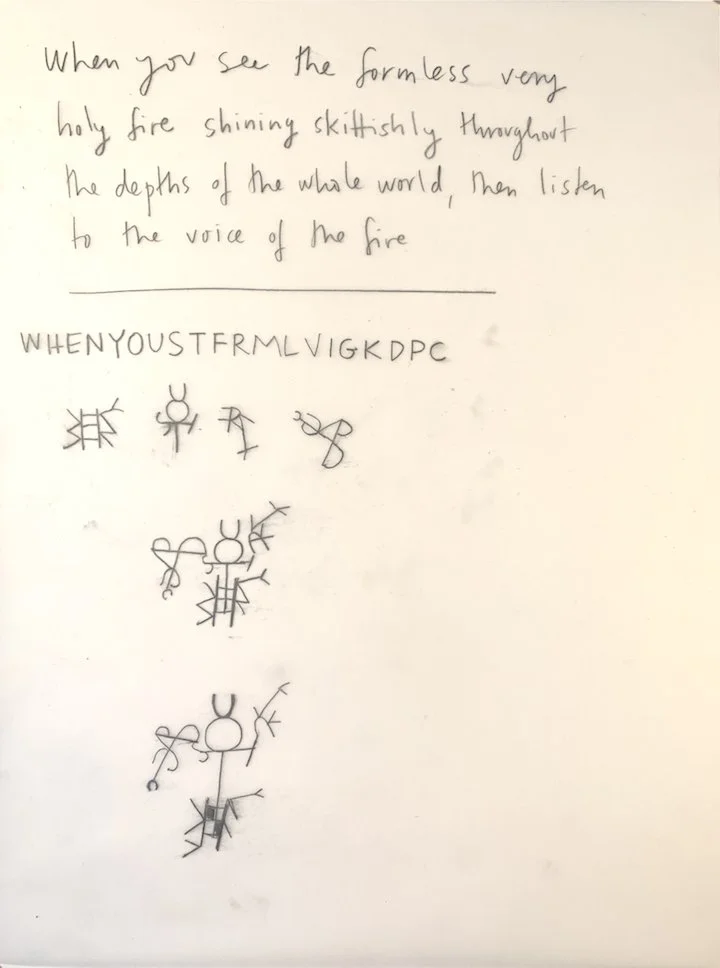 When you see the formless very
holy fire shining skittishly throughout
the depths of the whole world, then listen
to the voice of the fire
WHENYOUSTFRMLVIGKDPC